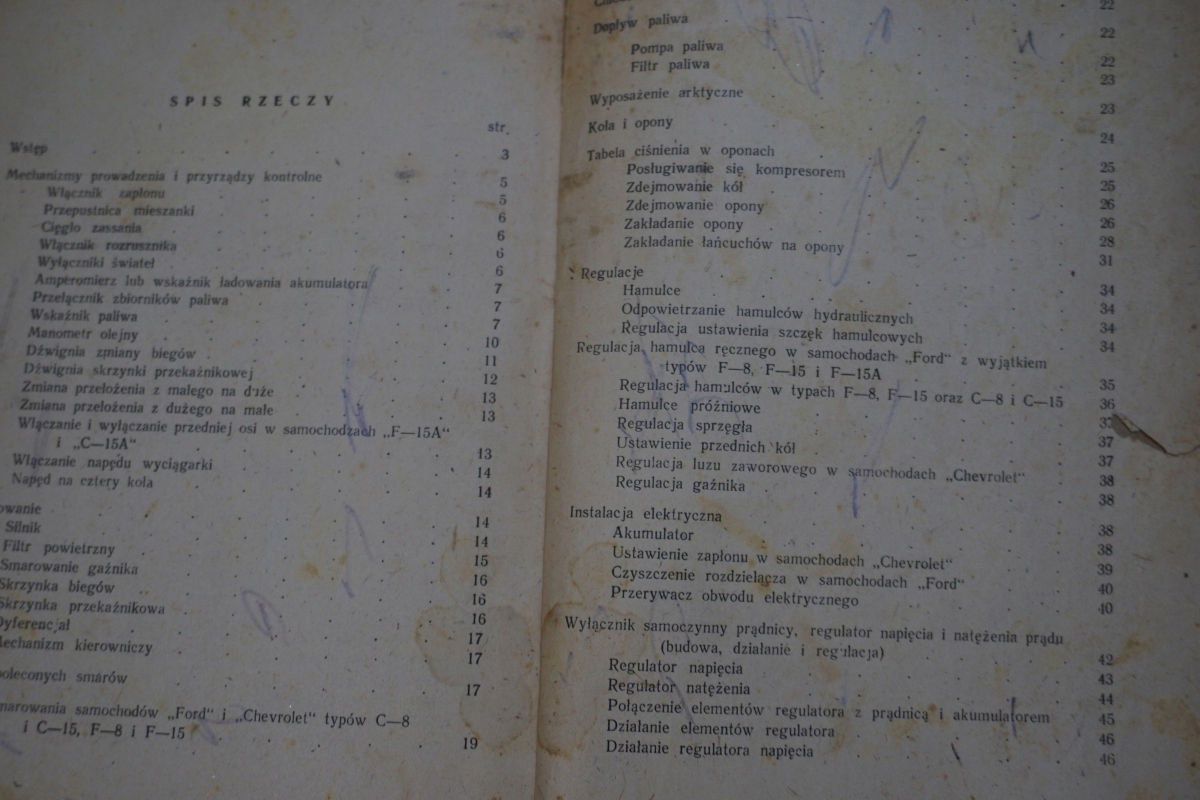 SPIS RZECZY
str.
Wstęp 3
Mechanizmy prowadzenia i przyrządy kontrolne 5
Włącznik zapłonu 5
Przepustnica mieszanki 6
Cięgło zassania 6
Włącznik rozrusznika 6
Wyłączniki świateł 6
Amperomierz lub wskaźnik ładowania akumulatora 7
Przełącznik zbiorników paliwa 7
Wskaźnik paliwa 7
Manometr olejny 10
Dźwignia zmiany biegów 11
Dźwignia skrzynki przekaźnikowej 12
Zmiana przełożenia z małego na duże 13
Zmiana przełożenia z dużego na małe 13
Włączanie i wyłączanie przedniej osi w samochodzach „F—15A“
i „C—15A“ 13
Włączanie napędu wyciągarki 14
Napęd na cztery koła 14
owanie 14
Silnik 14
Filtr powietrzny 15
Smarowanie gaźnika 16
Skrzynka biegów 16
Skrzynka przekaźnikowa 16
Dyferencjał 17
Mechanizm kierowniczy 17
poleconych smarów 17
marowania samochodów „Ford“ i „Chevrolet“ typów C—8
i C—15, F—8 i F—15 19
22
Dopływ paliwa 22
Pompa paliwa 22
Filtr paliwa 23
Wyposażenie arktyczne 23
Koła i opony 24
Tabela ciśnienia w oponach 25
Posługiwanie się kompresorem 25
Zdejmowanie kół 26
Zdejmowanie opony 26
Zakładanie opony 28
Zakładanie łańcuchów na opony 31
Regulacje 34
Hamulce 34
Odpowietrzanie hamulców hydraulicznych 34
Regulacja ustawienia szczęk hamulcowych 34
Regulacja hamulca ręcznego w samochodach „Ford“ z wyjątkiem
typów F—8, F—15 i F—15A 35
Regulacja hamulców w typach F—8, F—15 oraz C—8 i C—15 36
Hamulce próżniowe 37
Regulacja sprzęgła 37
Ustawienie przednich kół 37
Regulacja luzu zaworowego w samochodach „Chevrolet“ 38
Regulacja gaźnika 38
Instalacja elektryczna 38
Akumulator 38
Ustawienie zapłonu w samochodach „Chevrolet“ 39
Czyszczenie rozdzielacza w samochodach „Ford“ 40
Przerywacz obwodu elektrycznego 40
Wyłącznik samoczynny prądnicy, regulator napięcia i natężenia prądu
(budowa, działanie i regulacja) 42
Regulator napięcia 43
Regulator natężenia 44
Połączenie elementów regulatora z prądnicą i akumulatorem 45
Działanie elementów regulatora 46
Działanie regulatora napięcia 46